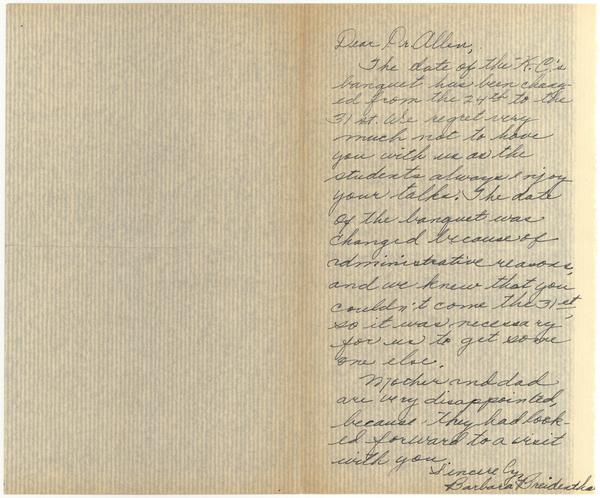 Dear Dr. Allen,
The date of the K-C's
banquet has been chang-
ed from the 24th to the
31 st. We regret very
much not to have
you with us as the
students always enjoy
your talks. The date
of the banquet was
changed because of
administrative reasons,
and we knew that you
couldn't come the 31 st,
so it was necessary
for us to get some
one else.
Mother and dad
are very disappointed,
because they had look-
ed forward to a visit
with you.
Sincerely,
Barbara